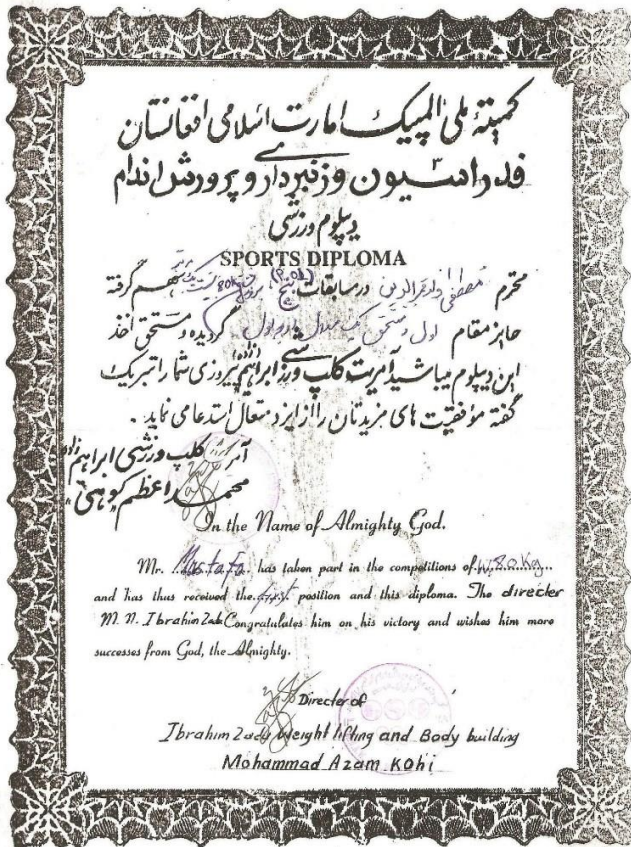 کمیتهٔ ملی المپیک امارت اسلامی افغانستان
فدراسیون وزنبرداری و پرورش اندام
دیپلوم ورزشی
SPORTS DIPLOMA
محترم مصطفی در مسابقات سهم گرفته
حایز مقام اول و مستحق گردیده و مستحق اخذ
این دیپلوم میباشید آمریت کلپ ورزشی ابراهیم زاده پیروزی شما را تبریک
گفته مؤفقیت های مزیدتان را از ایزد متعال استدعا می نماید .
آمر کلپ ورزشی ابراهیم زاده
محمد اعظم کوهی
In the Name of Almighty God.
Mr. Mustafa has taken part in the competitions of W.80.Kg
and has thus received the first position and this diploma. The directer
M. N. Ibrahim Zada Congratulates him on his victory and wishes him more
successes from God, the Almighty.
Directer of
Ibrahim Zada weight lifting and Body building
Mohammad Azam KOhi